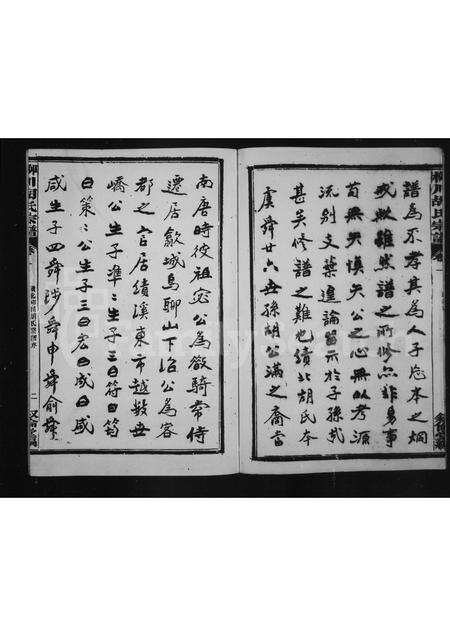 譜為不孝其為人子忘本之烱
戒歟雖然譜之所修亦非易事
苟無天慎矢公之心無以考源
流別支葉遑論啚示於子孫哉
甚矣修譜之難也績北胡氏本
虞舜廿六世孫胡公滿之裔當
南唐時彼祖宓公為散騎常侍
遷居歙城烏聊山下治公為客
都之官居績溪東市越數世
嶠公生子準準生子三曰符曰筠
曰策策公生子三曰宏曰咸曰盛
咸生子四舜陟舜申舜俞舜